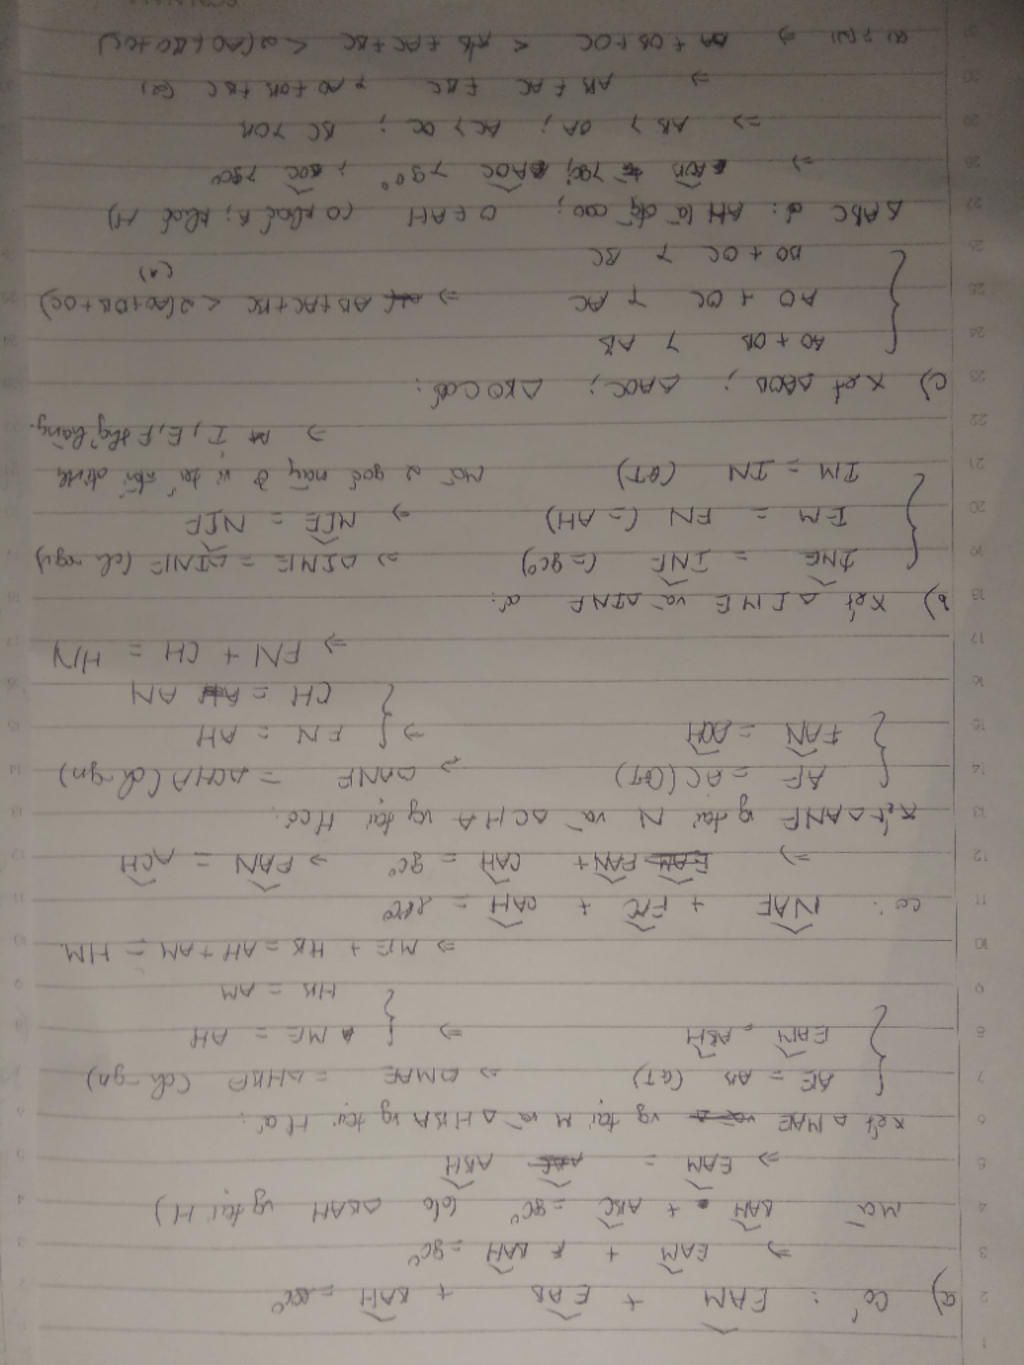 a) Có : EAM + EAB + BAH = 180°
⇒ EAM + BAH = 90°
Mà BAH + ABC = 90° (do ΔBAH vg tại H)
⇒ EAM = ABH
Xét Δ MAE vg tại M và Δ HBA vg tại H có:
AE = AB (GT) ⇒ ΔMAE = ΔHBA (ch-gn)
EAM = ABH ⇒ ME = AH
HB = AM
⇒ ME + HB = AH + AM = HM
Có: NAF + FAC + CAH = 180°
⇒ FAN + CAH = 90° ⇒ FAN = ACH
Xét ΔANF vg tại N và ΔCHA vg tại H có:
AF = AC (GT) ⇒ ΔANF = ΔCHA (ch-gn)
FAN = ACH ⇒ FN = AH
CH = AN
⇒ FN + CH = HN
b) Xét Δ IME và ΔINF có:
IME = INF (= 90°) ⇒ ΔIME = ΔINF (ch-cgv)
EM = FN (= AH) ⇒ MIE = NIF
IM = IN (GT) Mà 2 góc này ở vị trí đối đỉnh
⇒ I, E, F thg hàng.
c) Xét ΔAOB ; ΔAOC ; ΔBOC có:
AO + OB > AB
AO + OC > AC ⇒ AB + AC + BC < 2(AO + OB + OC)
BO + OC > BC (1)
ΔABC có: AH là đg cao; O ∈ AH (O khác A; khác H)
⇒ AOB > 90°; AOC > 90°; BOC > 90°
⇒ AB > OA; AC > OC; BC > OB
⇒ AB + AC + BC > AO + OB + OC (2)
(1) ⇒ OA + OB + OC < AB + AC + BC < 2(AO + BO + OC)